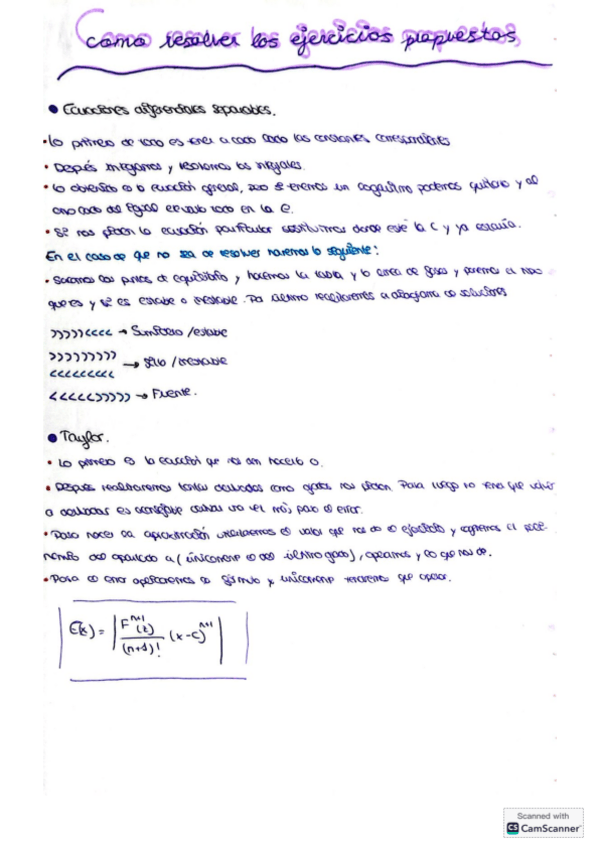 como resolver los ejercicios propuestos
• Ecuaciones diferenciales separables.
• Lo primero de todo es tener a cada lado las constantes correspondientes
• Después integramos y resolvemos las integrales.
• Lo obtenido es la ecuación general, solo si tenemos un logaritmo podemos quitarlo y al
otro lado del igual elevarlo todo en la e.
• Si nos piden la ecuación particular sustituimos donde este la C y ya estaría.
En el caso de que no sea de resolver haremos lo siguiente:
• Sacamos los puntos de equilibrio y hacemos la tabla y la línea de fases y ponemos el tipo
que es y si es estable o inestable. Por último realizaremos el diagrama de soluciones
>>>>><<<< → Sumidero /estable
>>>>>>>>>
<<<<<<<<< → Silla /inestable
<<<<<>>>>> → Fuente.
• Taylor.
• Lo primero es la ecuación que nos dan hacerla 0.
• Después realizaremos tantas derivadas como grados nos piden. Para luego no tener que volver
a derivar es aconsejable calcular una vez más, para el error.
• Para hacer la aproximación utilizaremos el valor que nos da el ejercicio y cogeremos el
del apartado a (únicamente el del último grado), operamos y lo que nos de.
• Para el error aplicaremos la fórmula y únicamente tendremos que operar.
E(x) = | F^{n+1}(z) / (n+1)! (x-c)^{n+1} |
Scanned with
CS CamScanner